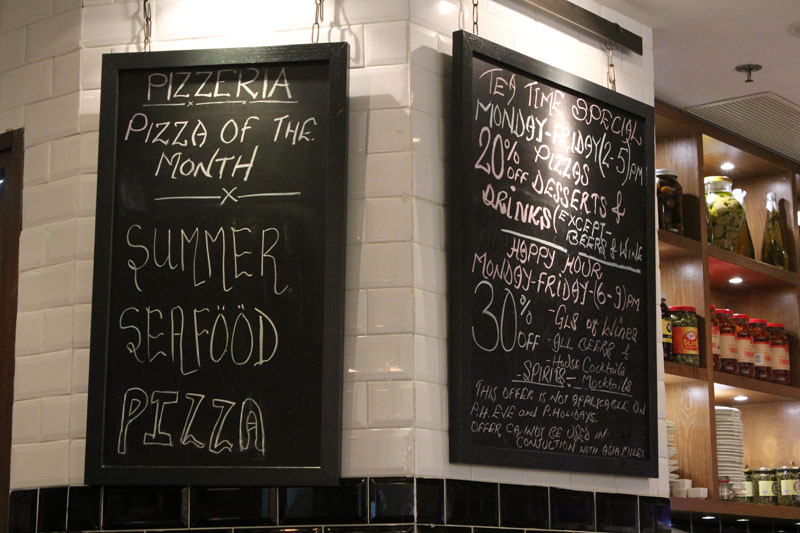 PIZZERIA
PIZZA OF THE
MONTH
SUMMER
SEAFÖÖD
PIZZA
TEA TIME SPECIAL
MONDAY-FRIDAY(2-5)PM
20% PIZZAS
OFF DESSERTS &
DRINKS (EXCEPT-
BEERS & WINE
HAPPY HOUR
MONDAY-FRIDAY-(6-9)PM
30% - GLS OF WINES
OFF - ALL BEERS &
- House Cocktails
- SPIRITS - Mocktails
THIS OFFER IS NOT APPLICABLE ON
P.H. EVE and P. HOLIDAYS.
OFFER CANNOT BE USED IN
CONJUCTION WITH ASIA MILES